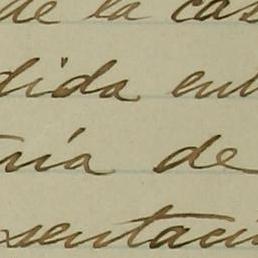 de la cas
dida ent
ría de
sentaci